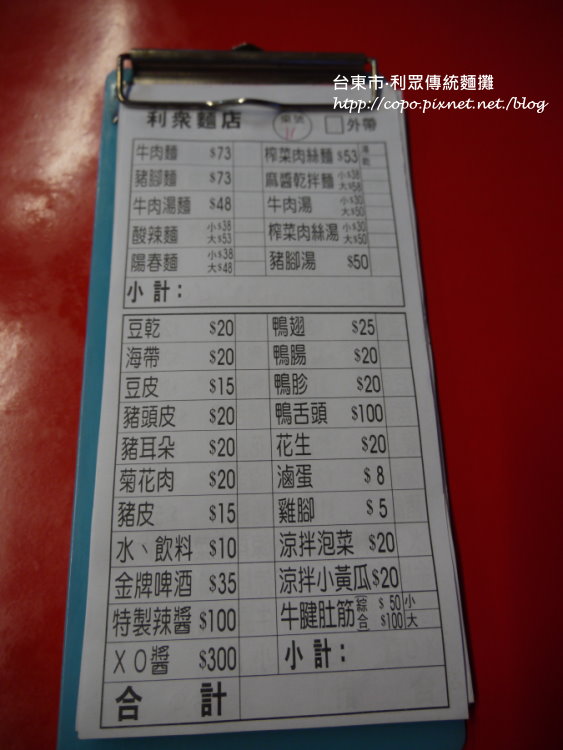 台東市‧利眾傳統麵攤
http://copo.pixnet.net/blog
利眾麵店 桌號 □外帶
牛肉麵 $73 榨菜肉絲麵 $53 湯 乾
豬腳麵 $73 麻醬乾拌麵 小$38 大$58
牛肉湯麵 $48 牛肉湯 小$30 大$50
酸辣麵 小$38 大$53 榨菜肉絲湯 小$30 大$50
陽春麵 小$38 大$48 豬腳湯 $50
小計：
豆乾 $20 鴨翅 $25
海帶 $20 鴨腸 $20
豆皮 $15 鴨胗 $20
豬頭皮 $20 鴨舌頭 $100
豬耳朵 $20 花生 $20
菊花肉 $20 滷蛋 $8
豬皮 $15 雞腳 $5
水、飲料 $10 涼拌泡菜 $20
金牌啤酒 $35 涼拌小黃瓜 $20
特製辣醬 $100 牛腱肚筋 綜合 $50 小 $100 大
XO醬 $300 小計：
合計